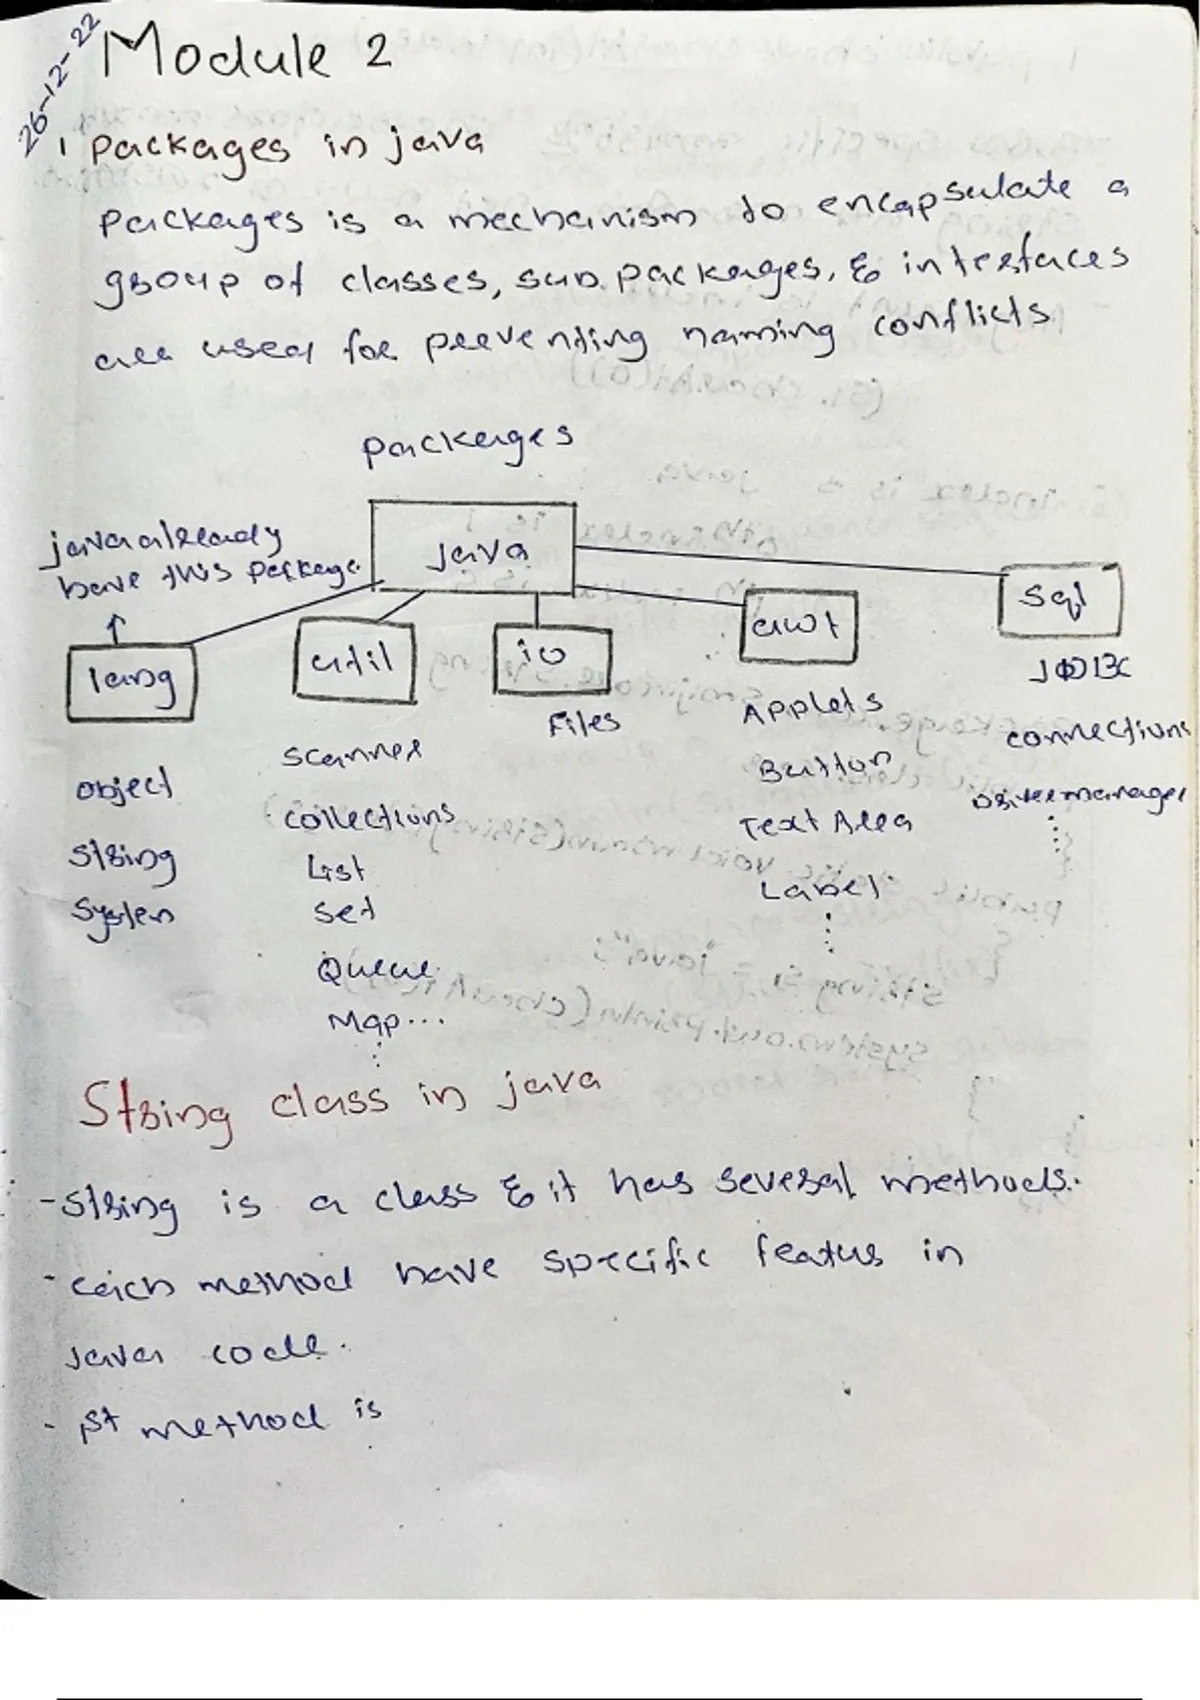 26-12-22
Module 2
1 packages in java
Packages is a mechanism to encapsulate a
group of classes, sub packages, & interfaces
are used for preventing naming conflicts
Packages
java already
have this package.
java
lang
util
io
awt
sql
Object
String
System
Scanner
Collections
List
Set
Queue
Map...
Files
Applets
Button
Text Area
Label
JDBC
connections
Drivermanager
String class in java
- String is a class & it has several methods.
- each method have specific featus in
Java code.
- 1st method is